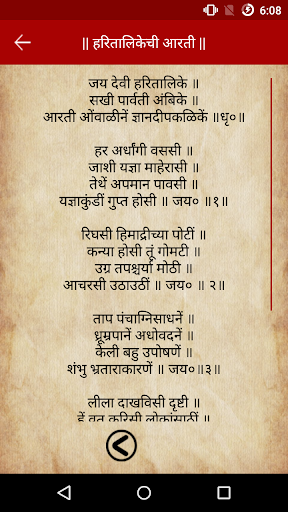 6:08
|| हरितालिकेची आरती ||
जय देवी हरितालिके ॥
सखी पार्वती अंबिके ॥
आरती ओंवाळीनें ज्ञानदीपकळिकें ॥धृ०॥
हर अर्धांगी वससी ॥
जाशी यज्ञा माहेरासी ॥
तेथें अपमान पावसी ॥
यज्ञाकुंडीं गुप्त होसी ॥ जय० ॥१॥
रिघसी हिमाद्रीच्या पोटीं ॥
कन्या होसी तूं गोमटी ॥
उग्र तपश्चर्या मोठी ॥
आचरसी उठाउठीं ॥ जय० ॥ २॥
ताप पंचाग्निसाधनें ॥
धूम्रपानें अधोवदनें ॥
केली बहु उपोषणें ॥
शंभु भ्रताराकारणें ॥ जय०॥३॥
लीला दाखविसी दृष्टी ॥
हें व्रत करिसी लोकांसाठीं ॥